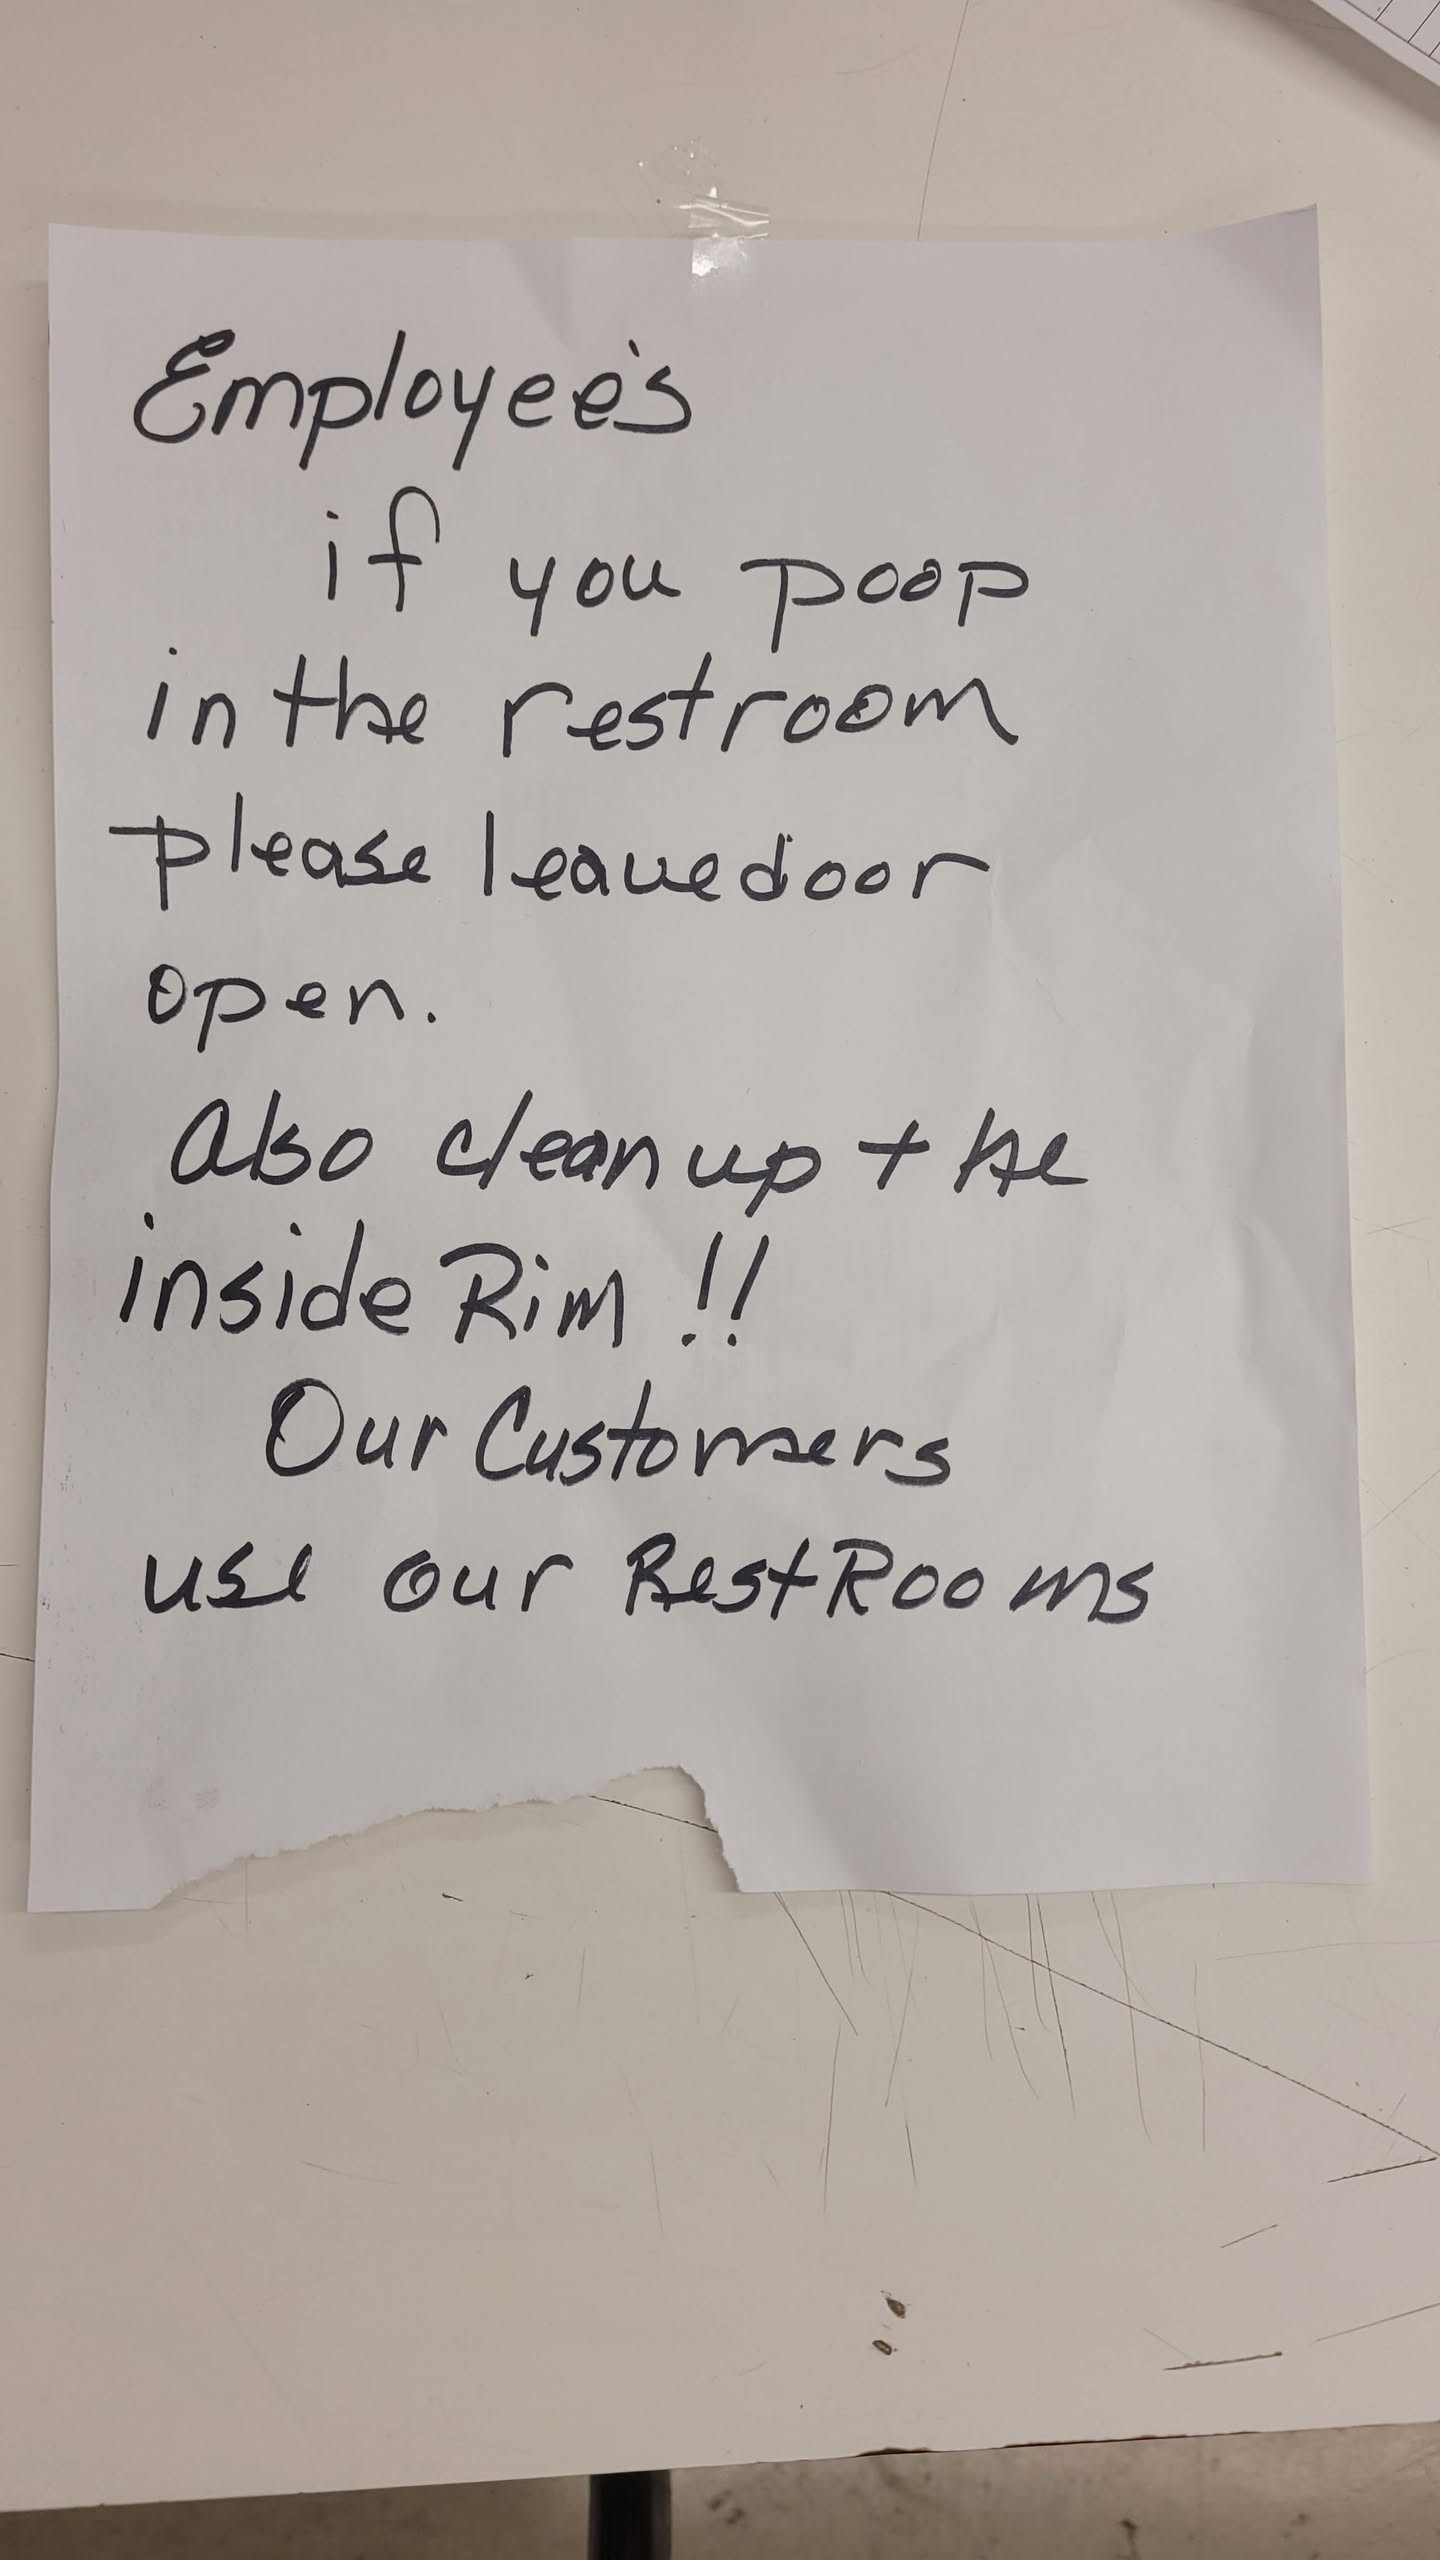 Employee's
if you poop
in the restroom
please leave door
open.
Also clean up the
inside Rim !!
Our Customers
use our RestRooms